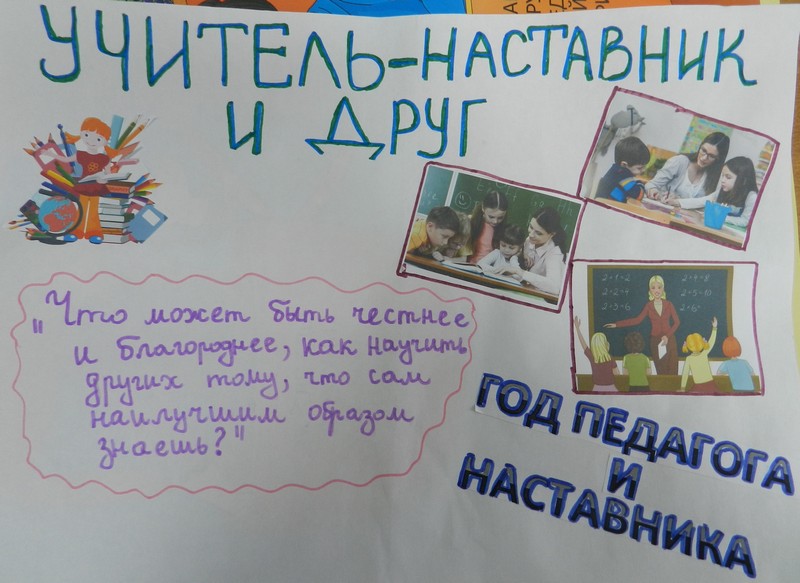 УЧИТЕЛЬ-НАСТАВНИК
И ДРУГ
"Что может быть честнее
и благороднее, как научить
других тому, что сам
наилучшим образом
знаешь?"
2+1=2
2+2=4
2+3=6
2+4=8
2+5=10
2+6=
ГОД ПЕДАГОГА
И
НАСТАВНИКА